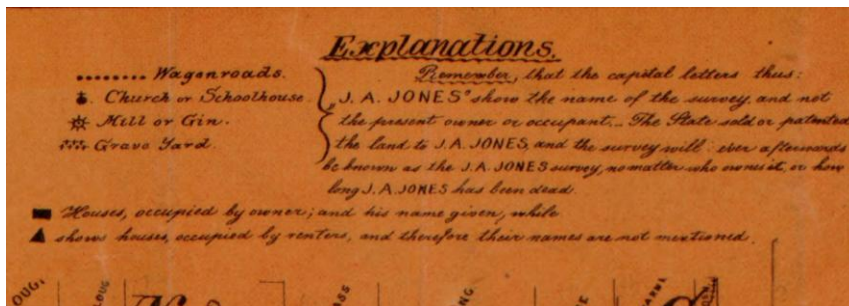 Explanations.
........ Wagonroads.
Church or Schoolhouse.
Mill or Gin.
Grave Yard.
Remember, that the capital letters thus:
„J. A. JONES" show the name of the survey, and not
the present owner or occupant... The State sold or patented
the land to J. A. JONES, and the survey will ever afterwards
be known as the J. A. JONES survey, no matter who owns it, or how
long J. A. JONES has been dead.
Houses, occupied by owner; and his name given, while
shows houses, occupied by renters, and therefore their names are not mentioned.